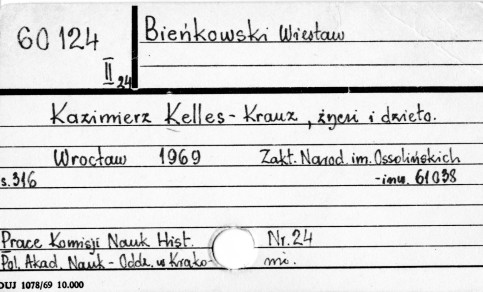 60124
II 24
Bieńkowski Wiesław
Kazimierz Kelles-Krauz, życie i dzieło.
Wrocław 1969 Zakt. Narod. im. Ossolińskich
s.316 -inw. 61038
Prace Komisji Nauk Hist. Nr. 24
Pol. Akad. Nauk - Oddz. w Krako- mi.
DUJ 1078/69 10.000